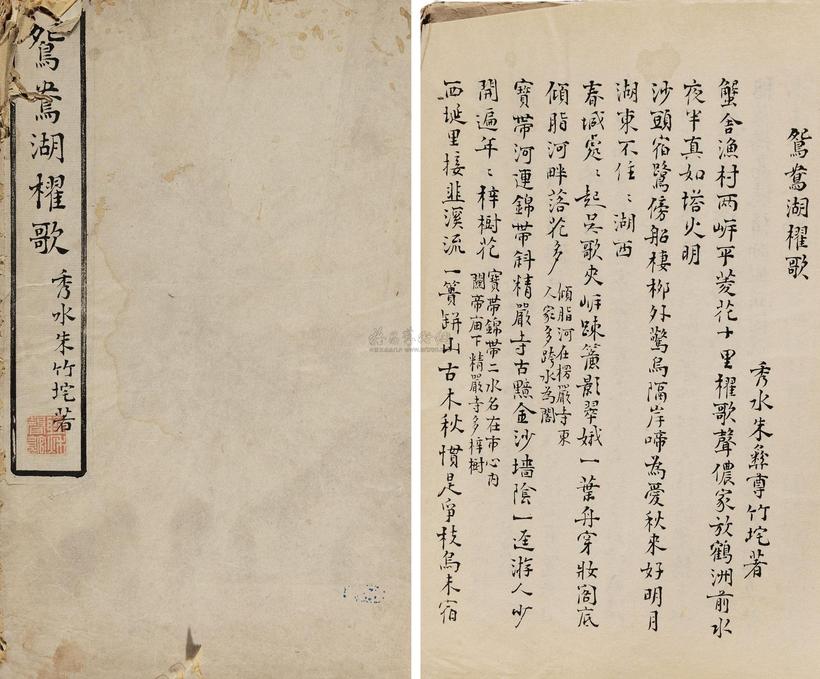 鴛鴦湖櫂歌
秀水朱竹垞著
鴛鴦湖櫂歌
秀水朱彝尊竹垞著
蟹舍漁村兩岍平菱花十里櫂歌聲儂家放鶴洲前水
夜半真如塔火明
沙頭宿鷺傍船棲柳外驚烏隔岸啼為愛秋來好明月
湖東不住〻湖西
春城處〻起吳歌夾岍疎簾影翠娥一葉舟穿妝閣底
傾脂河畔落花多
傾脂河在楞嚴寺東
人家多跨水為閣
寶帶河連錦帶斜精嚴寺古黯金沙墻陰一逕游人少
開遍年〻梓樹花
寶帶錦帶二水名在市心內
關帝庙下精嚴寺多梓樹
西埏里接韭溪流一簣缾山古木秋慣是爭枝烏未宿